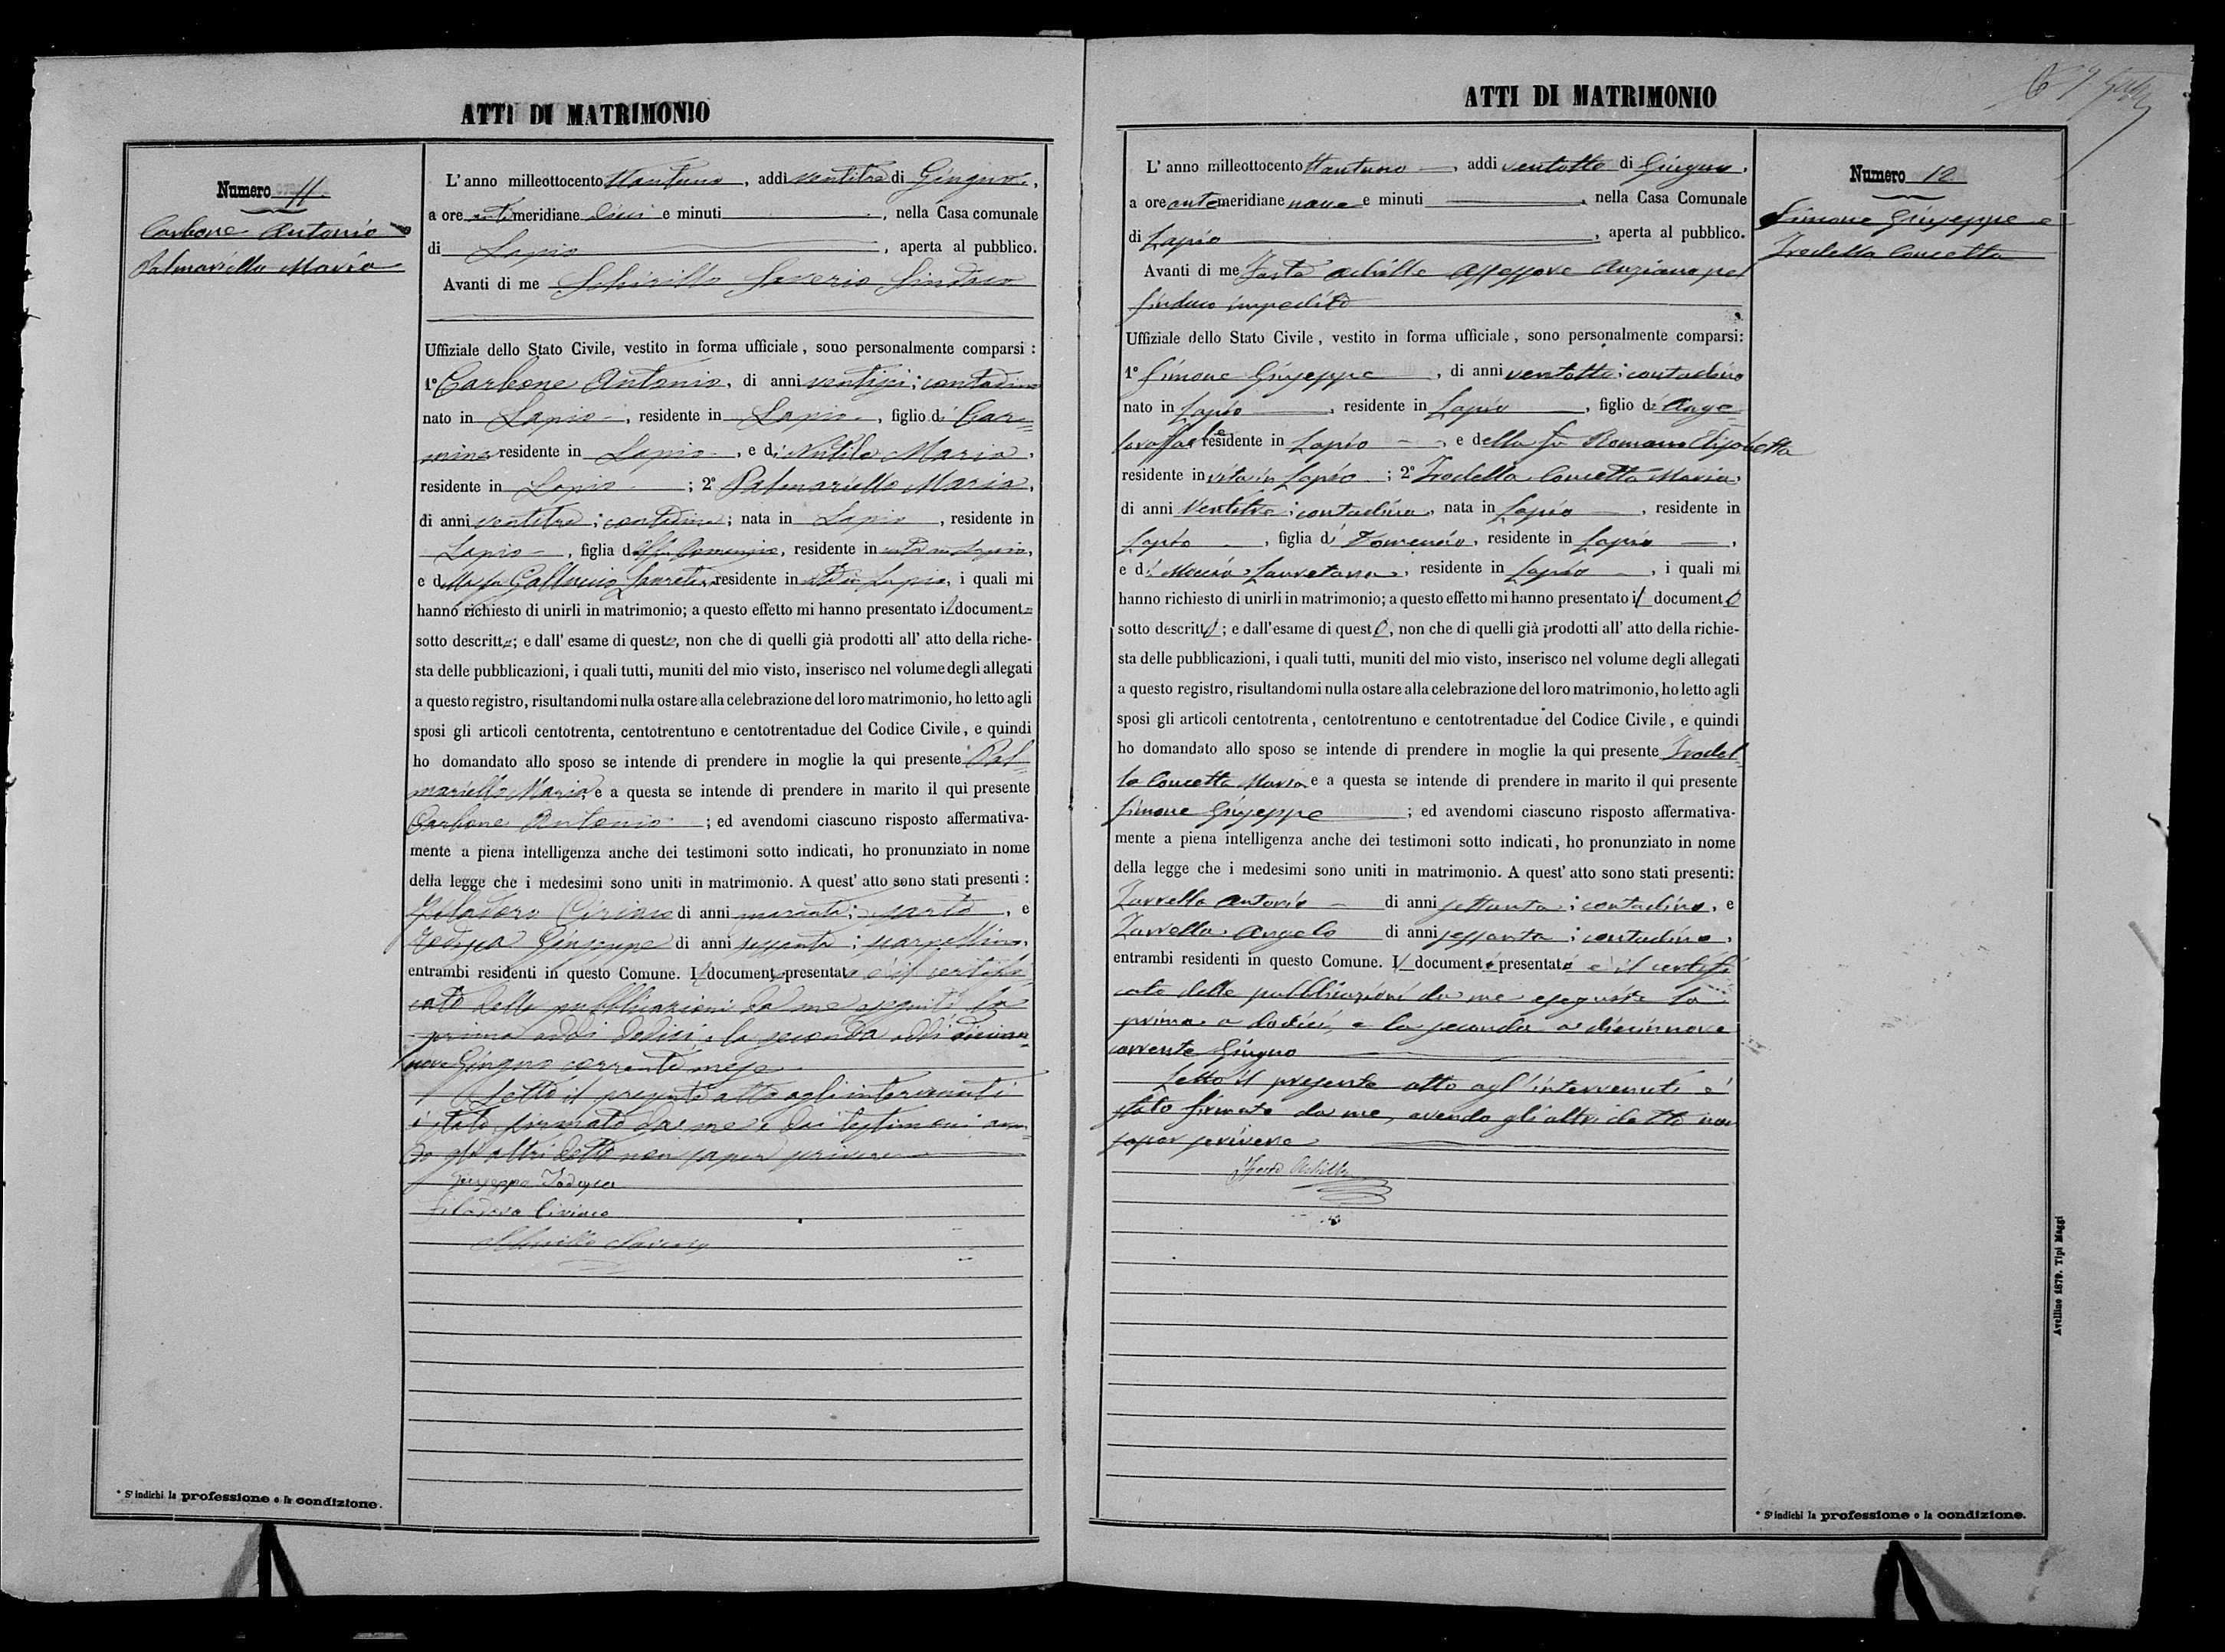 ATTI DI MATRIMONIO
Numero 11
Carbone Antonio e
Palmariello Maria
L' anno milleottocento ttantuno, addi ventitre di Giugno,
a ore antimeridiane dieci e minuti , nella Casa comunale
di Lapio , aperta al pubblico.
Avanti di me Schirillo Saverio Sindaco
Uffiziale dello Stato Civile, vestito in forma ufficiale, sono personalmente comparsi:
1° Carbone Antonio, di anni ventisei; contadino
nato in Lapio, residente in Lapio, figlio di Car=
mine residente in Lapio, e di Maria,
residente in Lapio ; 2° Palmariello Maria,
di anni ventitre; contadina; nata in Lapio, residente in
Lapio, figlia del fu Domenico, residente in vita in Lapio,
e della fu residente in vita in Lapio, i quali mi
hanno richiesto di unirli in matrimonio; a questo effetto mi hanno presentato il document
sotto descritt ; e dall' esame di quest , non che di quelli già prodotti all' atto della riche-
sta delle pubblicazioni, i quali tutti, muniti del mio visto, inserisco nel volume degli allegati
a questo registro, risultandomi nulla ostare alla celebrazione del loro matrimonio, ho letto agli
sposi gli articoli centotrenta, centotrentuno e centotrentadue del Codice Civile, e quindi
ho domandato allo sposo se intende di prendere in moglie la qui presente Pal=
mariello Maria, e a questa se intende di prendere in marito il qui presente
Carbone Antonio ; ed avendomi ciascuno risposto affermativa-
mente a piena intelligenza anche dei testimoni sotto indicati, ho pronunziato in nome
della legge che i medesimi sono uniti in matrimonio. A quest' atto sono stati presenti:
Filadoro Ciriaco di anni ; sarto, e
Todisca Giuseppe di anni sessanta; scarpellino,
entrambi residenti in questo Comune. Il document presentato è il certifi
cato delle pubblicazioni da me eseguite la
prima addi dodici, e la seconda addi dician=
nove Giugno corrente mese
Letto il presente atto agli intervenuti
è stato firmato da me e dai testimoni aven=
do gli altri detto non saper scrivere
Giuseppe Todisca
Filadoro Ciriaco
Schirillo Saverio
* S' indichi la professione o la condizione.
ATTI DI MATRIMONIO
Numero 12
Simone Giuseppe e
Trodella Concetta
L' anno milleottocento ttantuno, addi ventotto di Giugno,
a ore antemeridiane nove e minuti , nella Casa Comunale
di Lapio , aperta al pubblico.
Avanti di me Achille Assessore Anziano pel
Sindaco impedito
Uffiziale dello Stato Civile, vestito in forma ufficiale, sono personalmente comparsi:
1° Simone Giuseppe, di anni ventotto; contadino
nato in Lapio, residente in Lapio, figlio di Ange
residente in Lapio, e della fu Romano Elisabetta
residente in vita in Lapio ; 2° Trodella Concetta Maria,
di anni Ventitre; contadina, nata in Lapio, residente in
Lapio, figlia di Domenico, residente in Lapio,
e di Moccia Lauretana, residente in Lapio, i quali mi
hanno richiesto di unirli in matrimonio; a questo effetto mi hanno presentato il documento
sotto descritto; e dall' esame di questo, non che di quelli già prodotti all' atto della richie-
sta delle pubblicazioni, i quali tutti, muniti del mio visto, inserisco nel volume degli allegati
a questo registro, risultandomi nulla ostare alla celebrazione del loro matrimonio, ho letto agli
sposi gli articoli centotrenta, centotrentuno e centotrentadue del Codice Civile, e quindi
ho domandato allo sposo se intende di prendere in moglie la qui presente Trodel=
la Concetta Maria e a questa se intende di prendere in marito il qui presente
Simone Giuseppe ; ed avendomi ciascuno risposto affermativa-
mente a piena intelligenza anche dei testimoni sotto indicati, ho pronunziato in nome
della legge che i medesimi sono uniti in matrimonio. A quest' atto sono stati presenti:
Zarrella Antonio di anni settanta; contadino, e
Zarrella Angelo di anni sessanta; contadino,
entrambi residenti in questo Comune. Il document presentato è il certifi
cato delle pubblicazioni da me eseguite la
prima a dodici, e la seconda a diciannove
corrente Giugno
Letto il presente atto agl' intervenuti è
stato firmato da me, avendo gli altri detto non
saper scrivere
Achille
Avellino 1879. Tipi Maggi
* S' indichi la professione o la condizione.